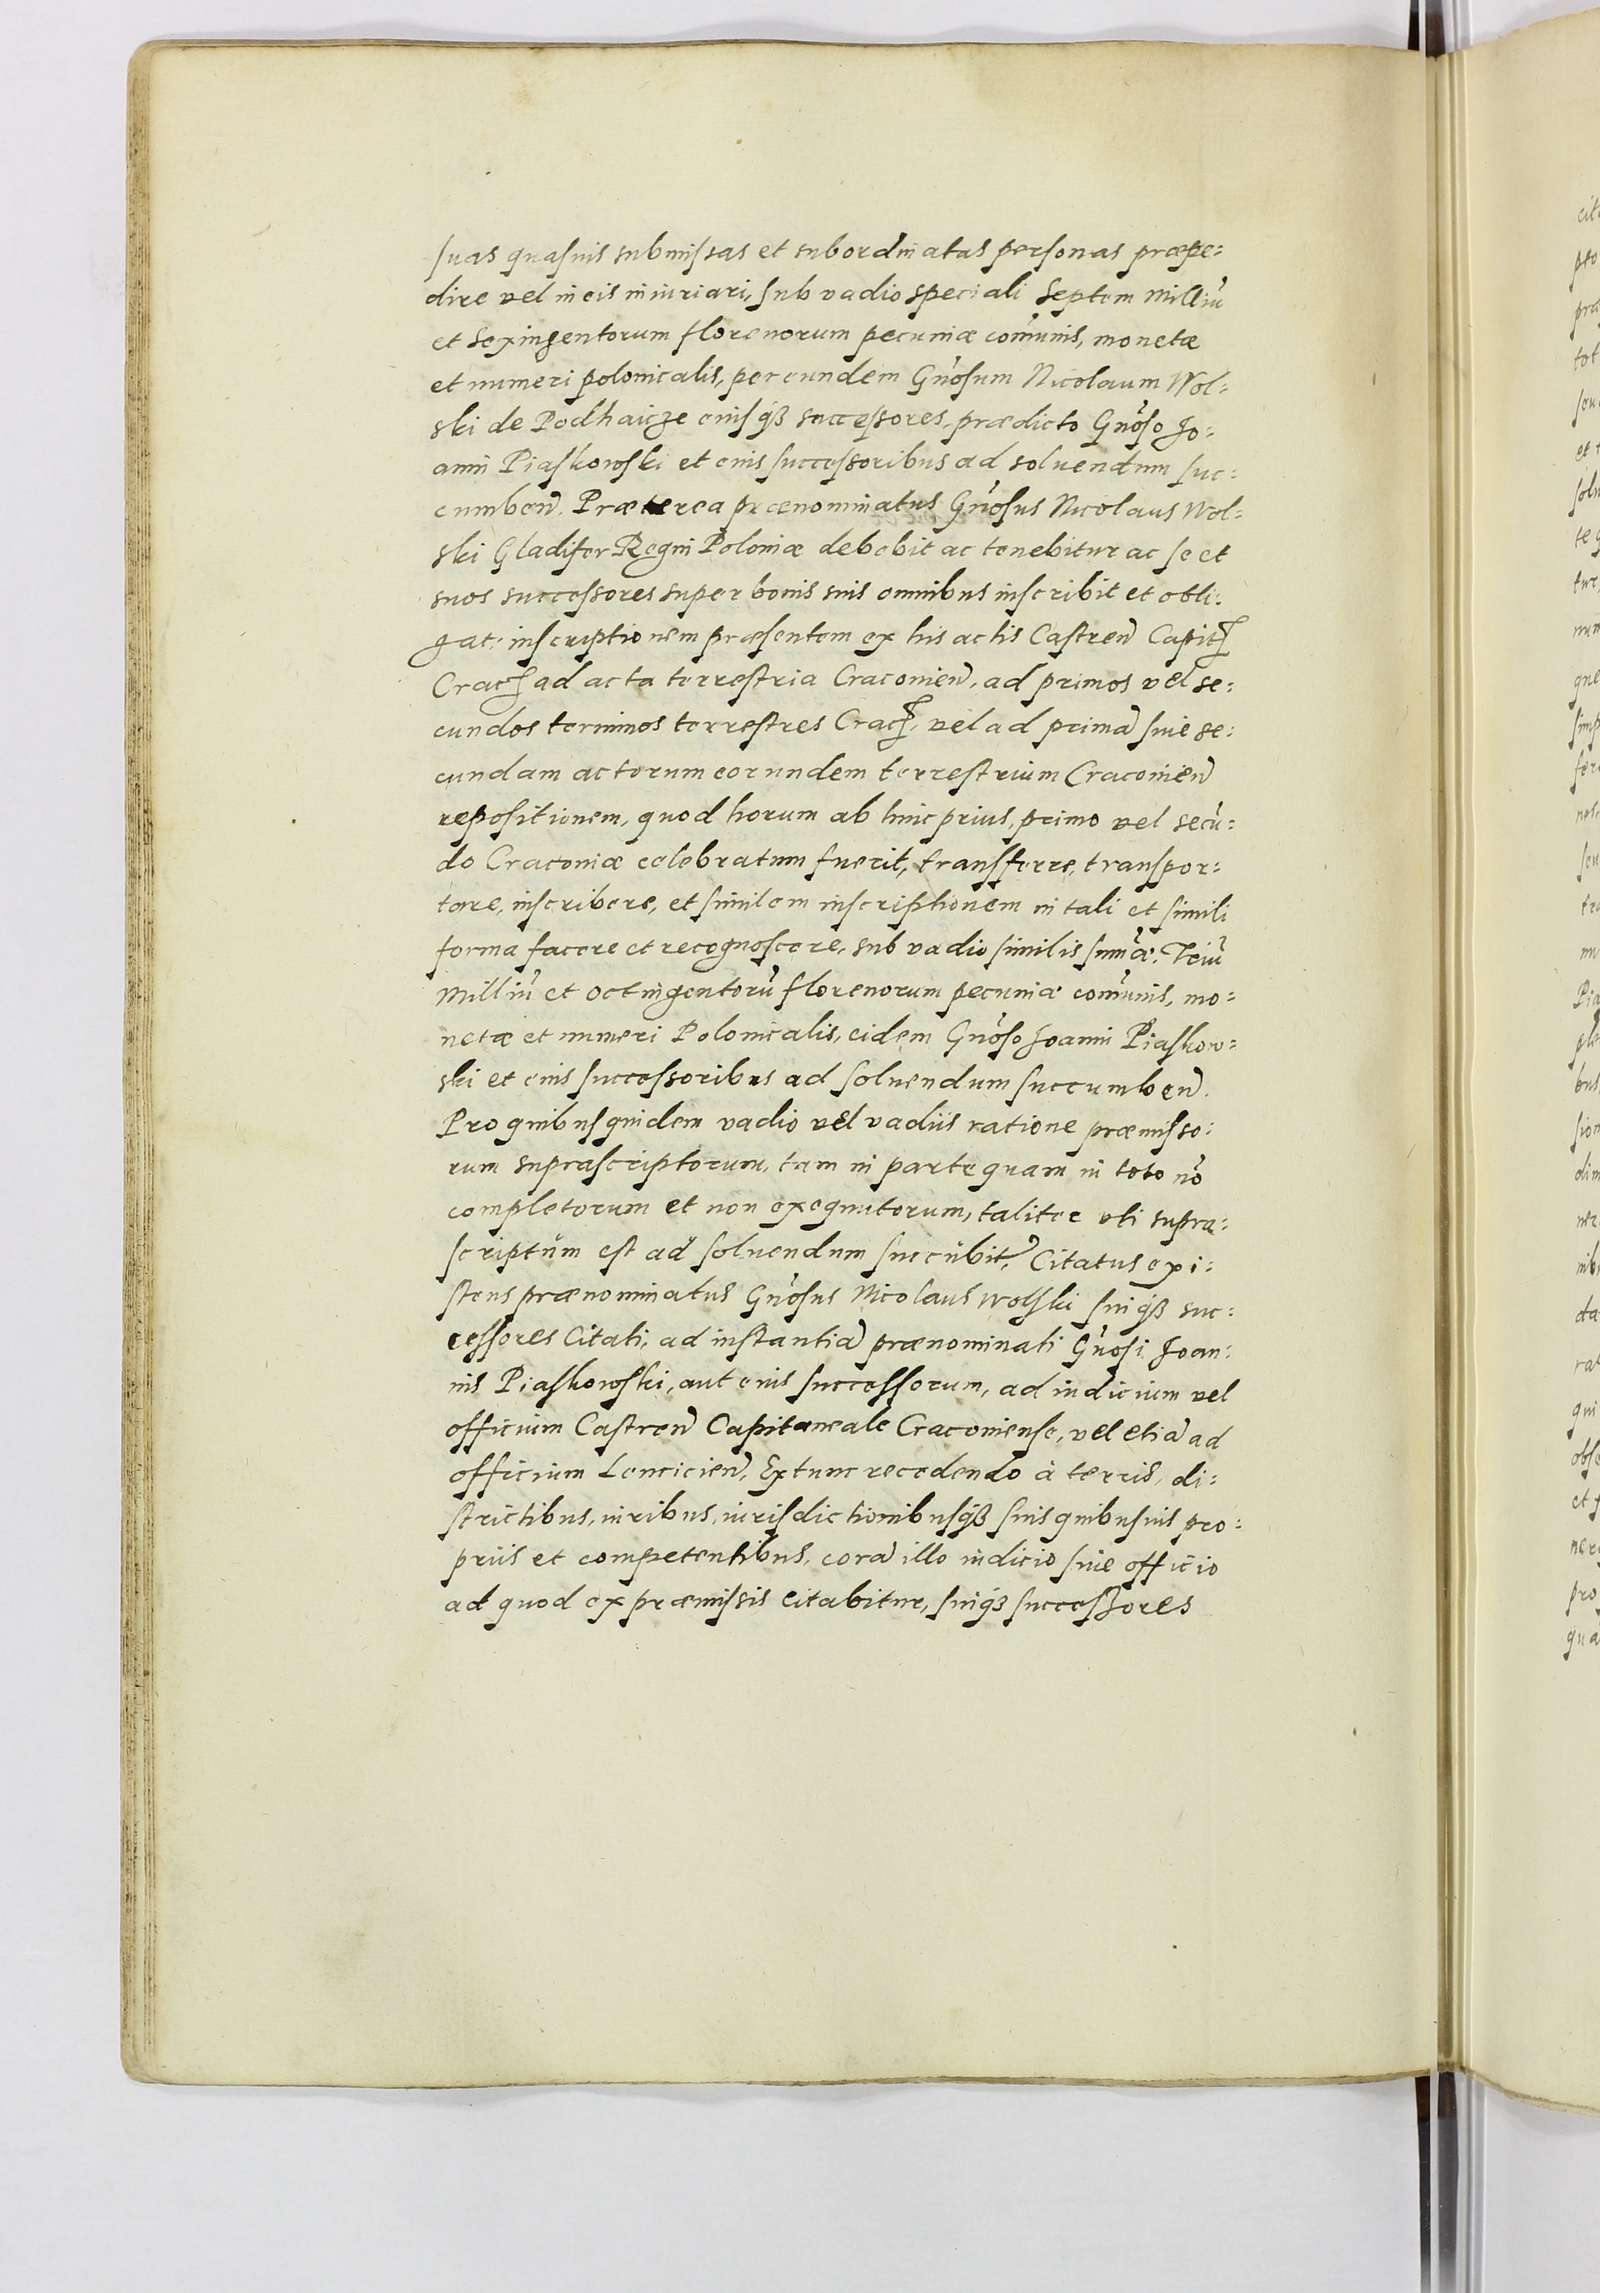 suas quasuis submissas et subordinatas personas præpe:
dire vel in eis iniuriari, sub vadio speciali Septem Milliũ
et sexingentorum florenorum pecuniæ cõmunis, monetæ
et numeri polonicalis, per eundem Gñosum Nicolaum Wol:
ski de Podhaicze eiusq̃ȝ successores, prædicto Gñoso Jo:
anni Piaskowski et eius successoribus ad soluendum suc:
cumbeñ. Præterea prænominatus Gñosus Nicolaus Wol:
ski Gladifer Regni Poloniæ debebit ac tenebitur ac se et
suos successores super bonis suis omnibus inscribit et obli:
gat: inscriptionem præsentem ex his actis Castreñ Capitꝭ
Cracꝭ ad acta terrestria Cracouieñ, ad primos vel se:
cundos terminos terrestres Cracꝭ. vel ad primã siue se:
cundam actorum eorundem terrestrium Cracouieñ
repositionem, quod horum ab hinc prius, primo vel secũ:
do Cracouiæ celebratum fuerit, transferre, transpor:
tare, inscribere, et similem inscriptionem in tali et simili
forma facere et recognoscere, sub vadio similis sum̃æ: Triũ
Milliũ et octingentorũ florenorum pecuniæ cõmunis, mo:
netæ et numeri Polonicalis, eidem Gñoso Joanni Piaskow:
ski et eius successoribus ad soluendum succumbeñ.
Pro quibusquidem vadio vel vadiis ratione præmisso:
rum suprascriptorum, tam in parte quam in toto nõ
completorum et non exequutorum, taliter uti supra:
scriptum est ad soluendum succũbit. Citatus exi:
stens prænominatus Gñosus Nicolaus Wolski suiq̃ȝ suc:
cessores Citati, ad instantiã prænominati Gñosi Joan:
nis Piaskowski, aut eius successorum, ad iudicium vel
officium Castreñ Capitaneale Cracouiense, vel etiã ad
officium Lencicieñ, Extunc recedendo à terris, di:
strictibus, iuribus, iurisdictionibusq̃ȝ suis quibusuis pro:
priis et competentibus, corã illo iudicio siue officio
ad quod ex præmissis citabitur, suiq̃ȝ successores